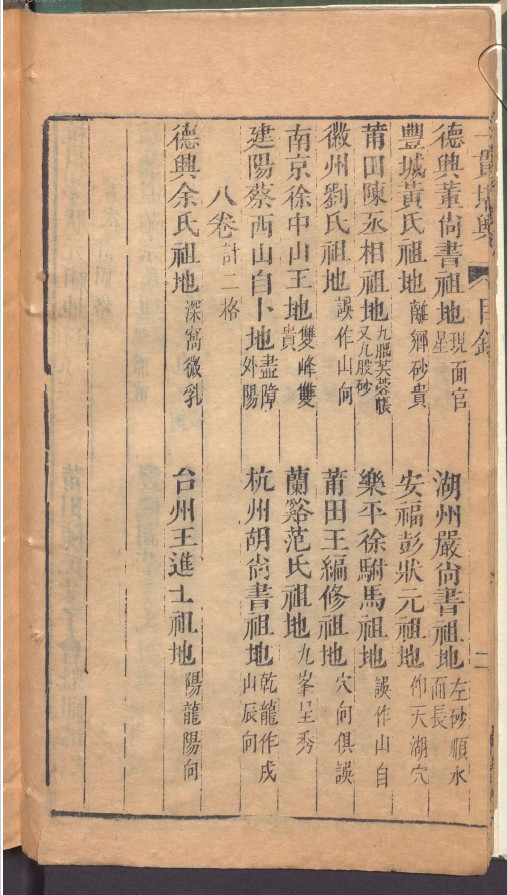 一貫堪輿 目錄 二
德興董尚書祖地 現面官星 湖州嚴尚書祖地 左砂順水而長
豐城黃氏祖地 離鄉砂貴 安福彭狀元祖地 仰天湖穴
莆田陳丞相祖地 九腦芙蓉帳又九股砂 樂平徐駙馬祖地 誤作山自
徽州劉氏祖地 誤作山向 莆田王編修祖地 穴向俱誤
南京徐中山王地 雙峰雙貴 蘭谿范氏祖地 九峯呈秀
建陽蔡西山自卜地 盡障外陽 杭州胡尚書祖地 乾龍作戌山辰向
八卷 計二格
德興余氏祖地 深窩微乳 台州王進士祖地 陽龍陽向